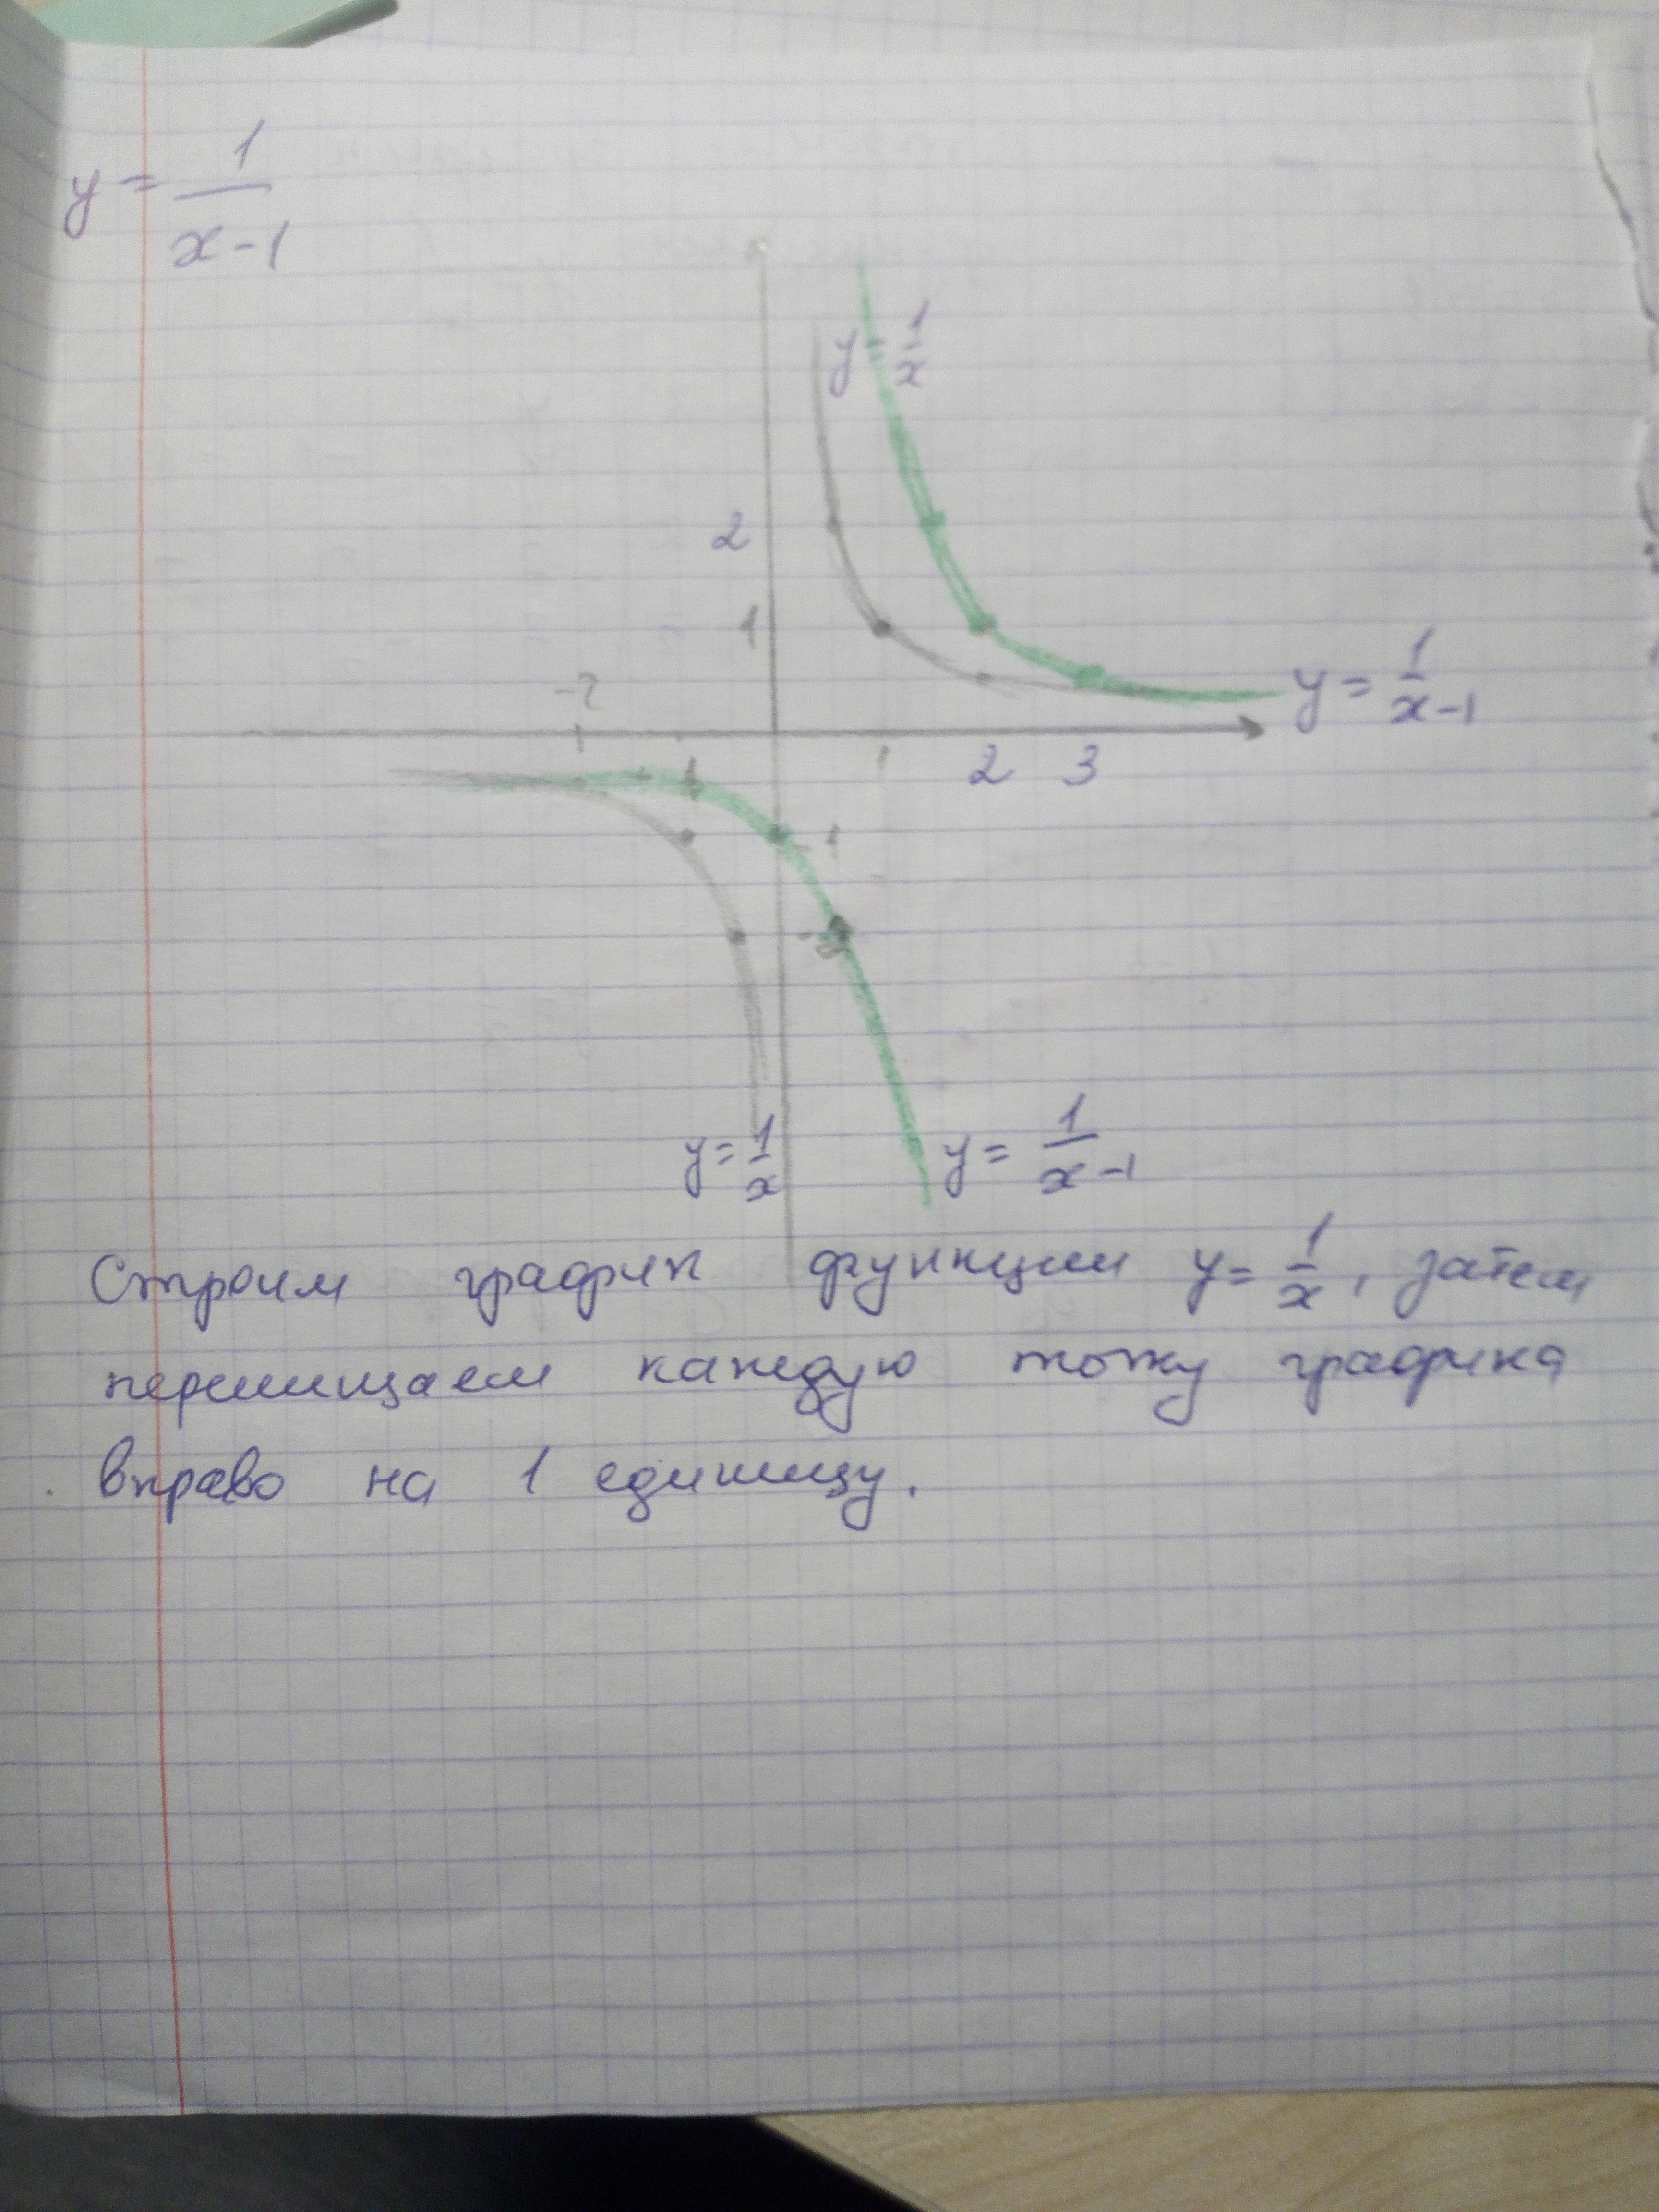 y = 1/(x-1)
y = 1/x
2
1
y = 1/(x-1)
-2
1 2 3
-1
y = 1/x y = 1/(x-1)
Строим график функции y = 1/x, затем
перемищаем каждую точку графика
вправо на 1 единицу.